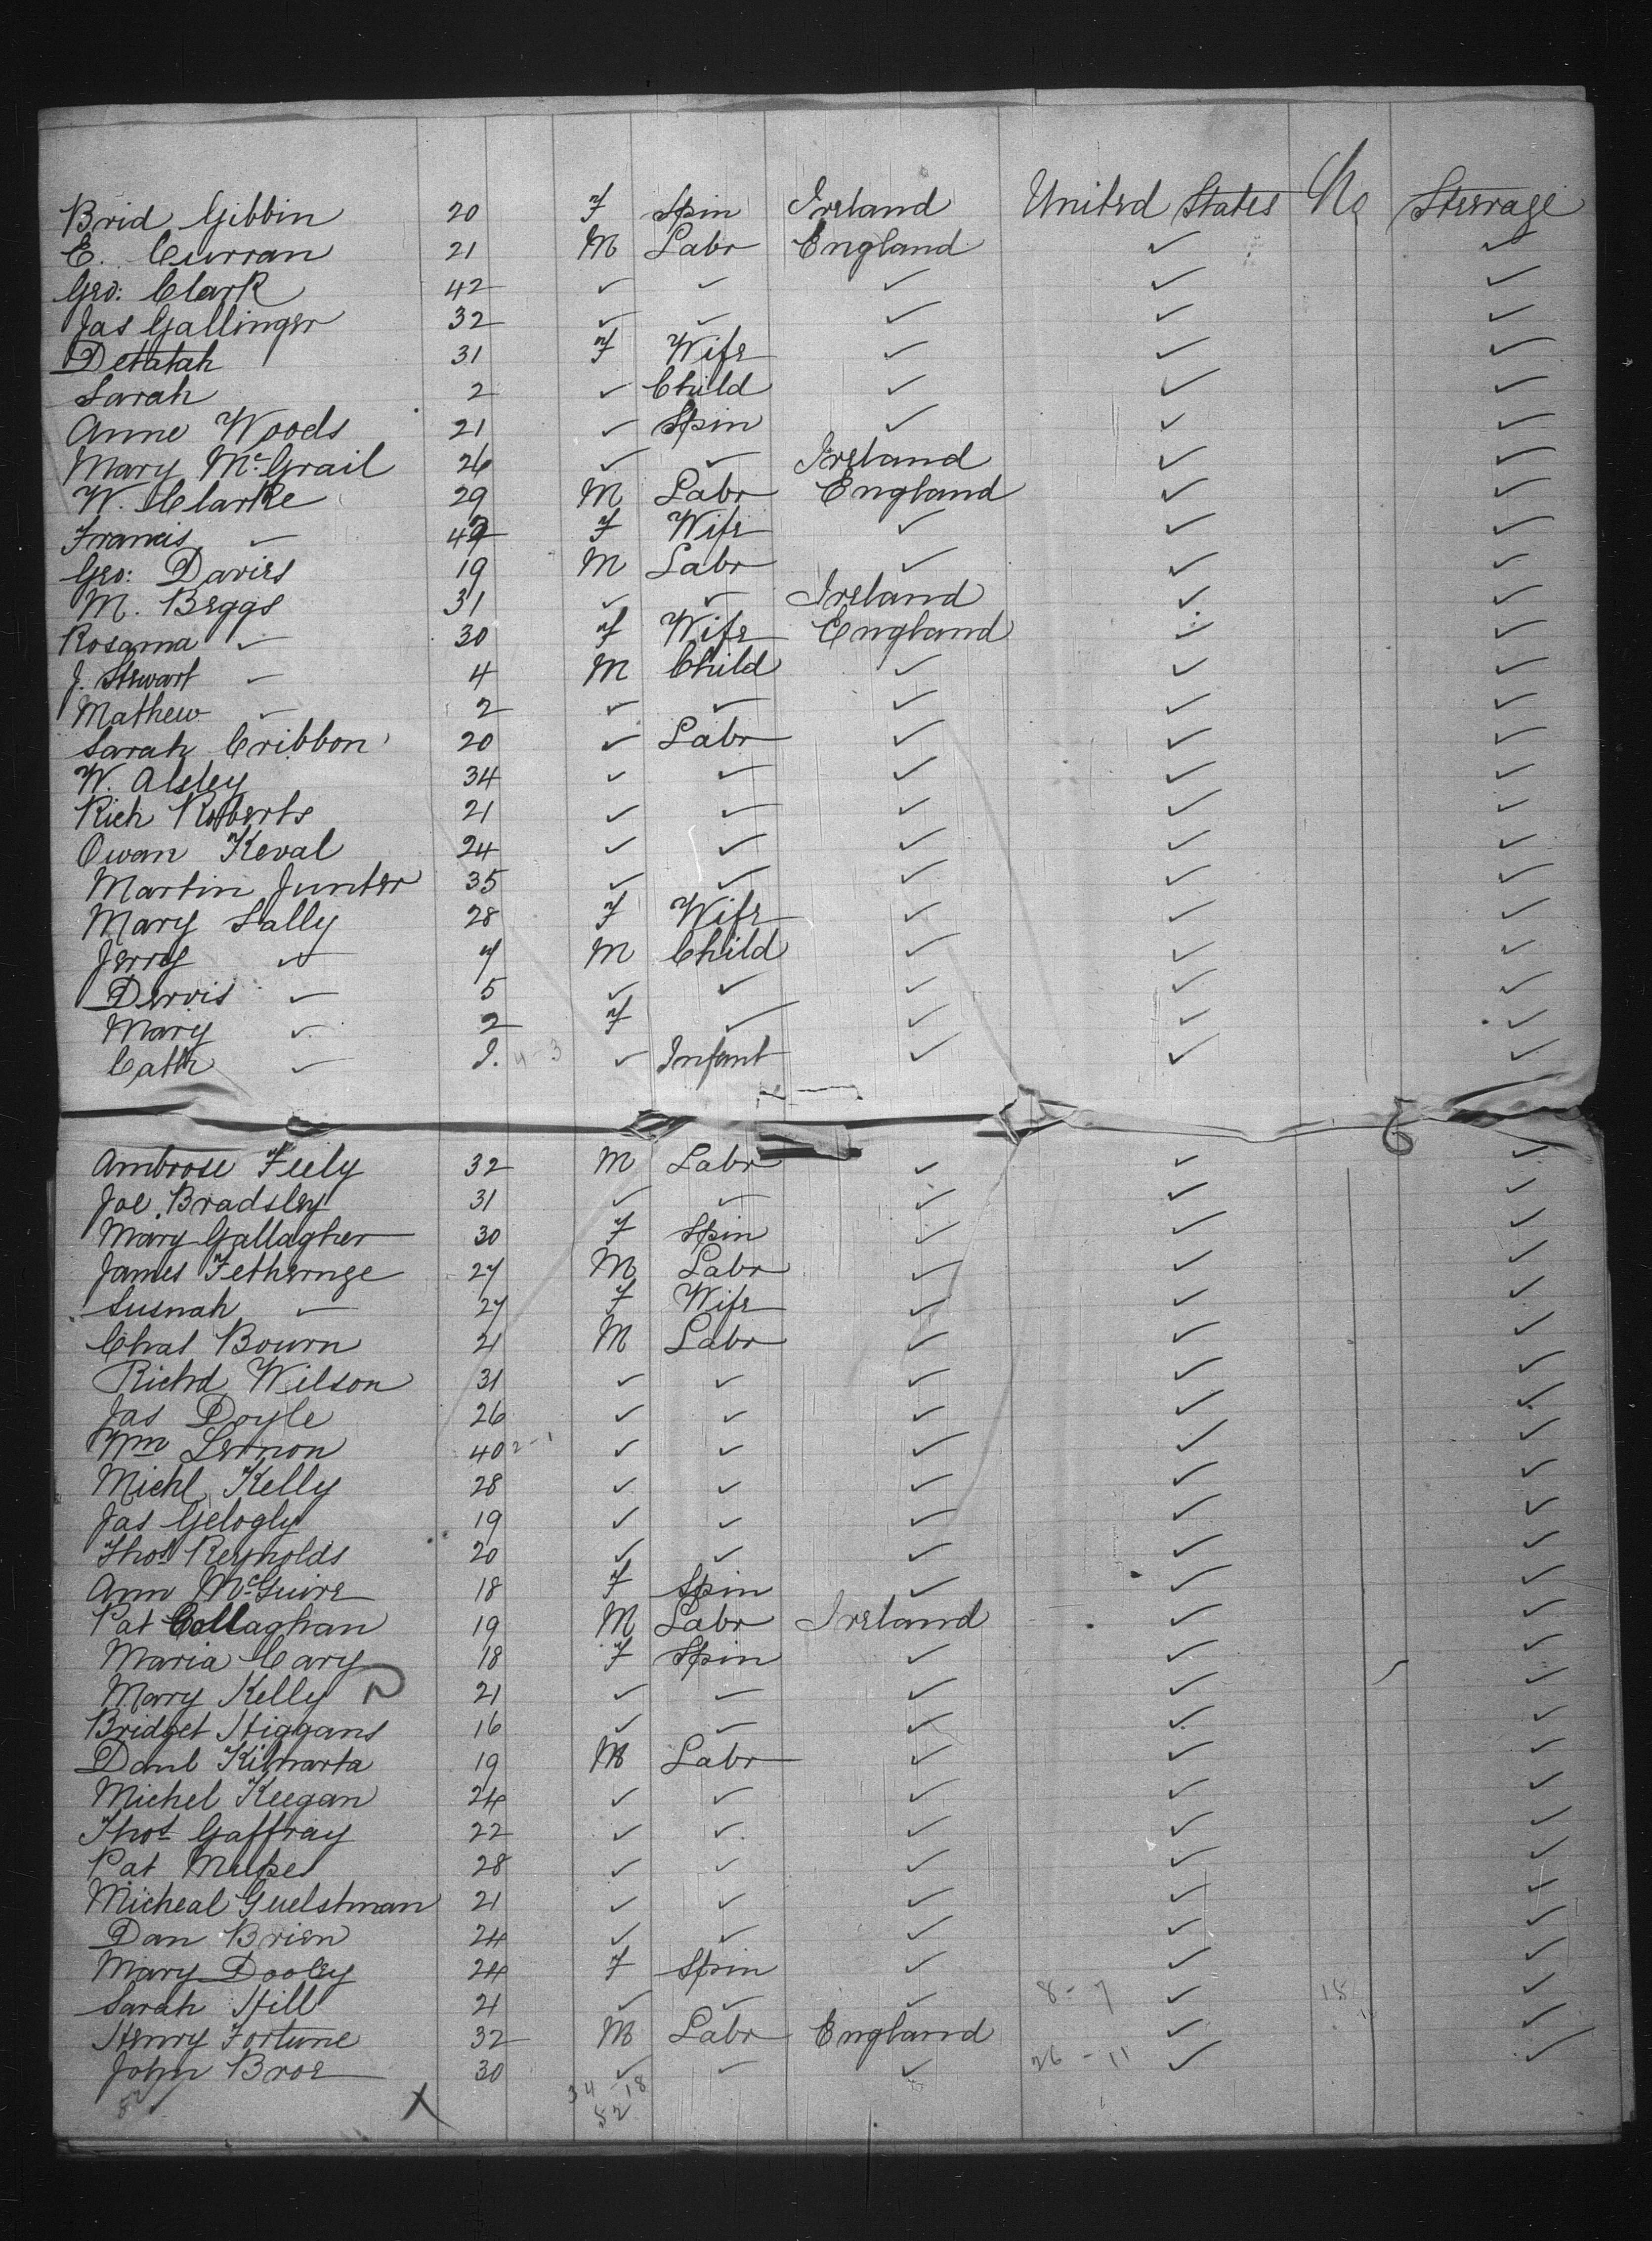 Brid Gibbin 20 F Spin Ireland United States No Steerage
E. Curran 21 M Labr England ✓ ✓
Geo: Clark 42 ✓ ✓ ✓ ✓ ✓
Jas Gallinger 32 ✓ ✓ ✓ ✓ ✓
Detatah 31 F Wife ✓ ✓ ✓
Sarah 2 ✓ Child ✓ ✓ ✓
Anne Woods 21 ✓ Spin ✓ ✓ ✓
Mary McGrail 26 ✓ ✓ Ireland ✓ ✓
W. Clarke 29 M Labr England ✓ ✓
Francis ✓ F Wife ✓ ✓ ✓
Geo: Davies 19 M Labr ✓ ✓ ✓
M. Beggs 31 ✓ ✓ Ireland ✓ ✓
Rosanna ✓ 30 F Wife England ✓ ✓
J. Stewart ✓ 4 M Child ✓ ✓ ✓
Mathew ✓ 2 ✓ ✓ ✓ ✓ ✓
Sarah Cribbon 20 ✓ Labr ✓ ✓ ✓
W. Alsley 34 ✓ ✓ ✓ ✓ ✓
Rich Roberts 21 ✓ ✓ ✓ ✓ ✓
Owan Keval 24 ✓ ✓ ✓ ✓ ✓
Martin Junter 35 ✓ ✓ ✓ ✓ ✓
Mary Lally 28 F Wife ✓ ✓ ✓
Jerry ✓ 7 M Child ✓ ✓ ✓
Dervis ✓ 5 ✓ ✓ ✓ ✓ ✓
Mary ✓ 2 F ✓ ✓ ✓ ✓
Cath ✓ 4-3 ✓ Infant ✓ ✓ ✓
Ambrose Feely 32 M Labr ✓ ✓ ✓
Joe Bradsley 31 ✓ ✓ ✓ ✓ ✓
Mary Gallagher 30 F Spin ✓ ✓ ✓
James Fethernge 27 M Labr ✓ ✓ ✓
Susnah ✓ 27 F Wife ✓ ✓ ✓
Chas Bourn 21 M Labr ✓ ✓ ✓
Richd Wilson 31 ✓ ✓ ✓ ✓ ✓
Jas Doyle 26 ✓ ✓ ✓ ✓ ✓
Wm Lernon 40 2-1 ✓ ✓ ✓ ✓ ✓
Michl Kelly 28 ✓ ✓ ✓ ✓ ✓
Jas Gelogly 19 ✓ ✓ ✓ ✓ ✓
Thos Reynolds 20 ✓ ✓ ✓ ✓ ✓
Ann McGuire 18 F Spin ✓ ✓ ✓
Pat Callaghan 19 M Labr Ireland ✓ ✓
Maria Cary 18 F Spin ✓ ✓ ✓
Mary Kelly 21 ✓ ✓ ✓ ✓ ✓
Bridget Higgans 16 ✓ ✓ ✓ ✓ ✓
Danl Kilmarta 19 M Labr ✓ ✓ ✓
Michel Keegan 24 ✓ ✓ ✓ ✓ ✓
Thos Gaffray 22 ✓ ✓ ✓ ✓ ✓
Pat 28 ✓ ✓ ✓ ✓ ✓
Micheal Guelstman 21 ✓ ✓ ✓ ✓ ✓
Dan Brien 24 ✓ ✓ ✓ ✓ ✓
Mary Dooley 24 F Spin ✓ ✓ ✓
Sarah Hill 21 ✓ ✓ ✓ 8-7 ✓ 15 ✓
Henry Fortune 32 M Labr England ✓ ✓
John Broe 30 ✓ ✓ ✓ 26-11 ✓ ✓
34 18
52 X 52